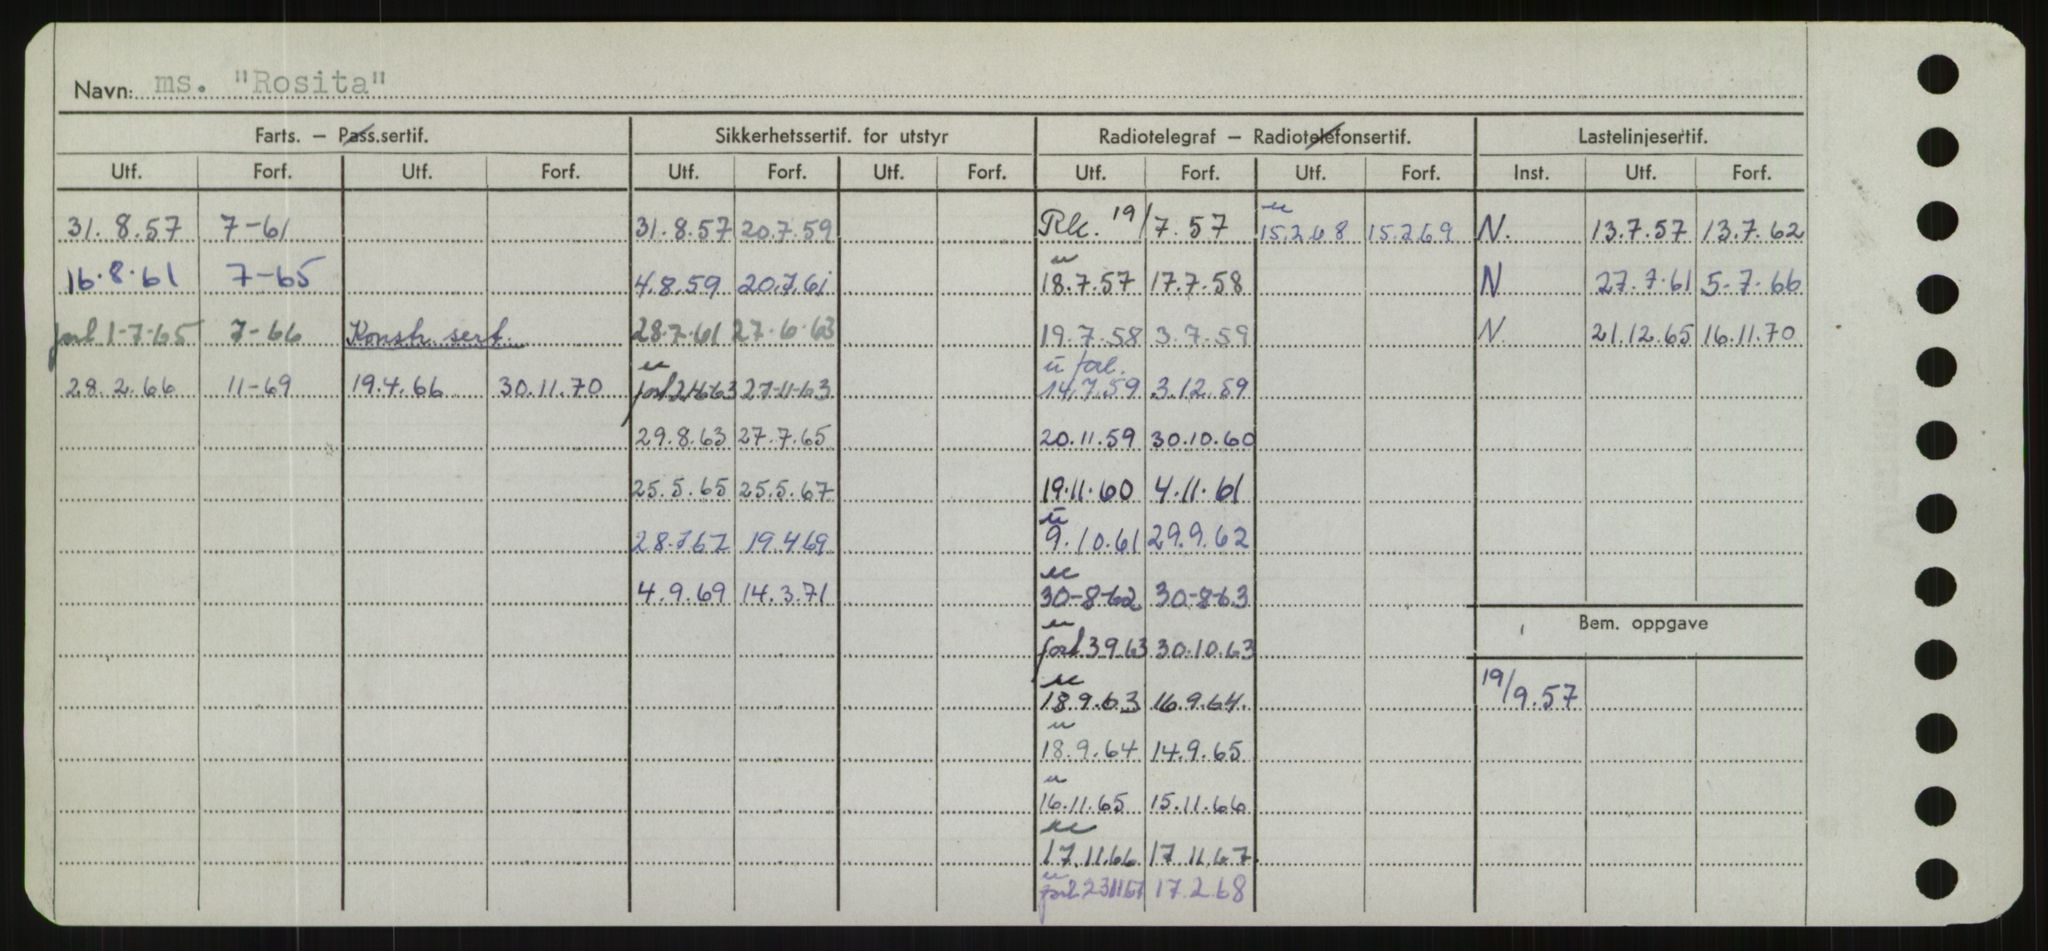 Navn: ms. "Rosita"
Farts. – Pass.sertif. Sikkerhetssertif. for utstyr Radiotelegraf – Radiotelefonsertif. Lastelinjesertif.
Utf. Forf. Utf. Forf. Utf. Forf. Utf. Forf. Utf. Forf. Utf. Forf. Inst. Utf. Forf.
31.8.57 7-61 31.8.57 20.7.59 Rk. 19/7.57 u 15.2.68 15.2.69 N. 13.7.57 13.7.62
u
16.8.61 7-65 4.8.59 20.7.61 18.7.57 17.7.58 N 27.7.61 5-7-66
forl 1-7-65 7-66 Konstr. sert. 28.7.61 27-6-63 19.7.58 3.7.59 N. 21.12.65 16.11.70
u u forl.
28.2.66 11-69 19.4.66 30.11.70 forl 27-11-63 14.7.59 3.12.59
29.8.63 27.7.65 20.11.59 30.10.60
25.5.65 25.5.67 19.11.60 4.11.61
u
28.7.67 19.4.69 9.10.61 29.9.62
u
4.9.69 14.3.71 30-8-62 30-8-63
u
Bem. oppgave
forl. 3.9.63 30.10.63
u
18.9.63 16.9.64. 19/9.57
u
18.9.64 14.9.65
u
16.11.65 15.11.66
u
17.11.66 17.11.67
u
forl 23.11.67 17.2.68